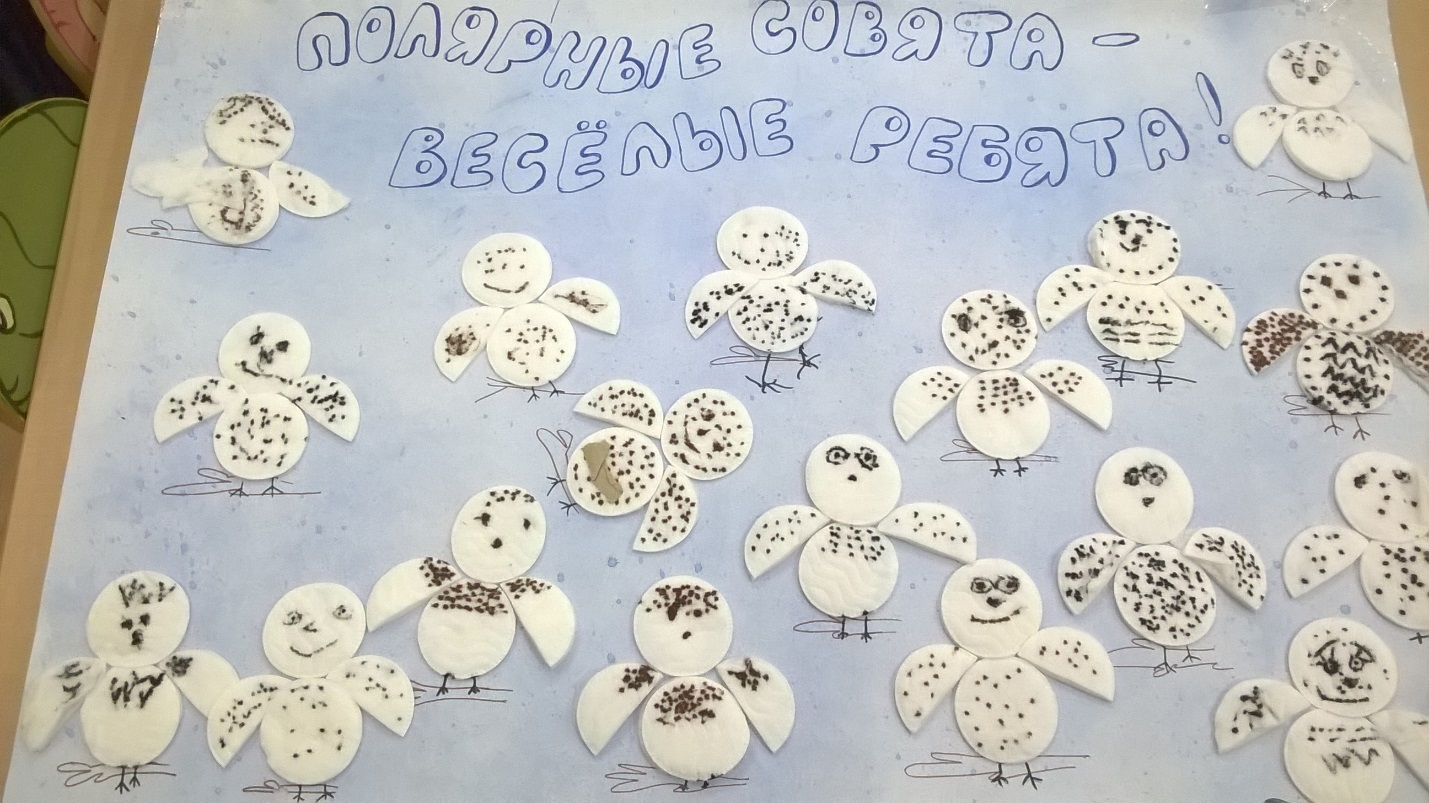 ПОЛЯРНЫЕ СОВЯТА -
ВЕСЁЛЫЕ РЕБЯТА!